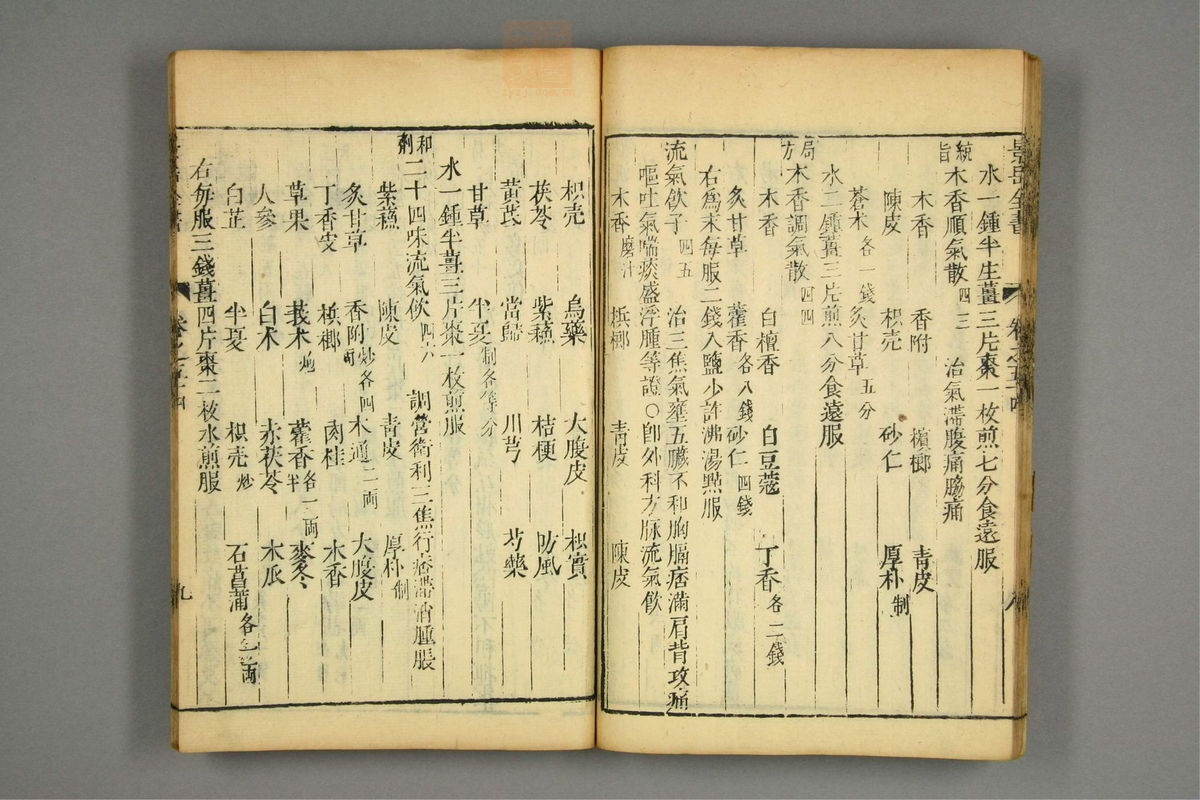 景岳全書 卷之五十四 八
水一鍾半生薑三片棗一枚煎七分食遠服
統旨木香順氣散四三 治氣滯腹痛脇痛
木香 香附 檳榔 青皮
陳皮 枳壳 砂仁 厚朴制
蒼术各一錢 炙甘草五分
水二鍾薑三片煎八分食遠服
局方木香調氣散四四
木香 白檀香 白豆蔻 丁香各二錢
炙甘草 藿香各八錢 砂仁四錢
右爲末每服二錢入鹽少許沸湯點服
流氣飲子四五 治三焦氣壅五臟不和胸膈痞滿肩背攻痛
嘔吐氣喘痰盛浮腫等證○卽外科方脉流氣飲
木香磨汁 梹榔 青皮 陳皮
枳壳 烏藥 大腹皮 枳實
茯苓 紫蘇 桔梗 防風
黃芪 當歸 川芎 芍藥
甘草 半夏制各等分
水一鍾半薑三片棗一枚煎服
和劑二十四味流氣飲四六 調營衛利三焦行痞滯消腫脹
紫蘇 陳皮 青皮 厚朴制
炙甘草 香附炒各四兩 木通二兩 大腹皮
丁香皮 梹榔 肉桂 木香
草果 莪术炮 藿香各一兩半 麥冬
人參 白术 赤茯苓 木瓜
白芷 半夏 枳壳炒 石菖蒲各一兩
右每服三錢薑四片棗二枚水煎服
九